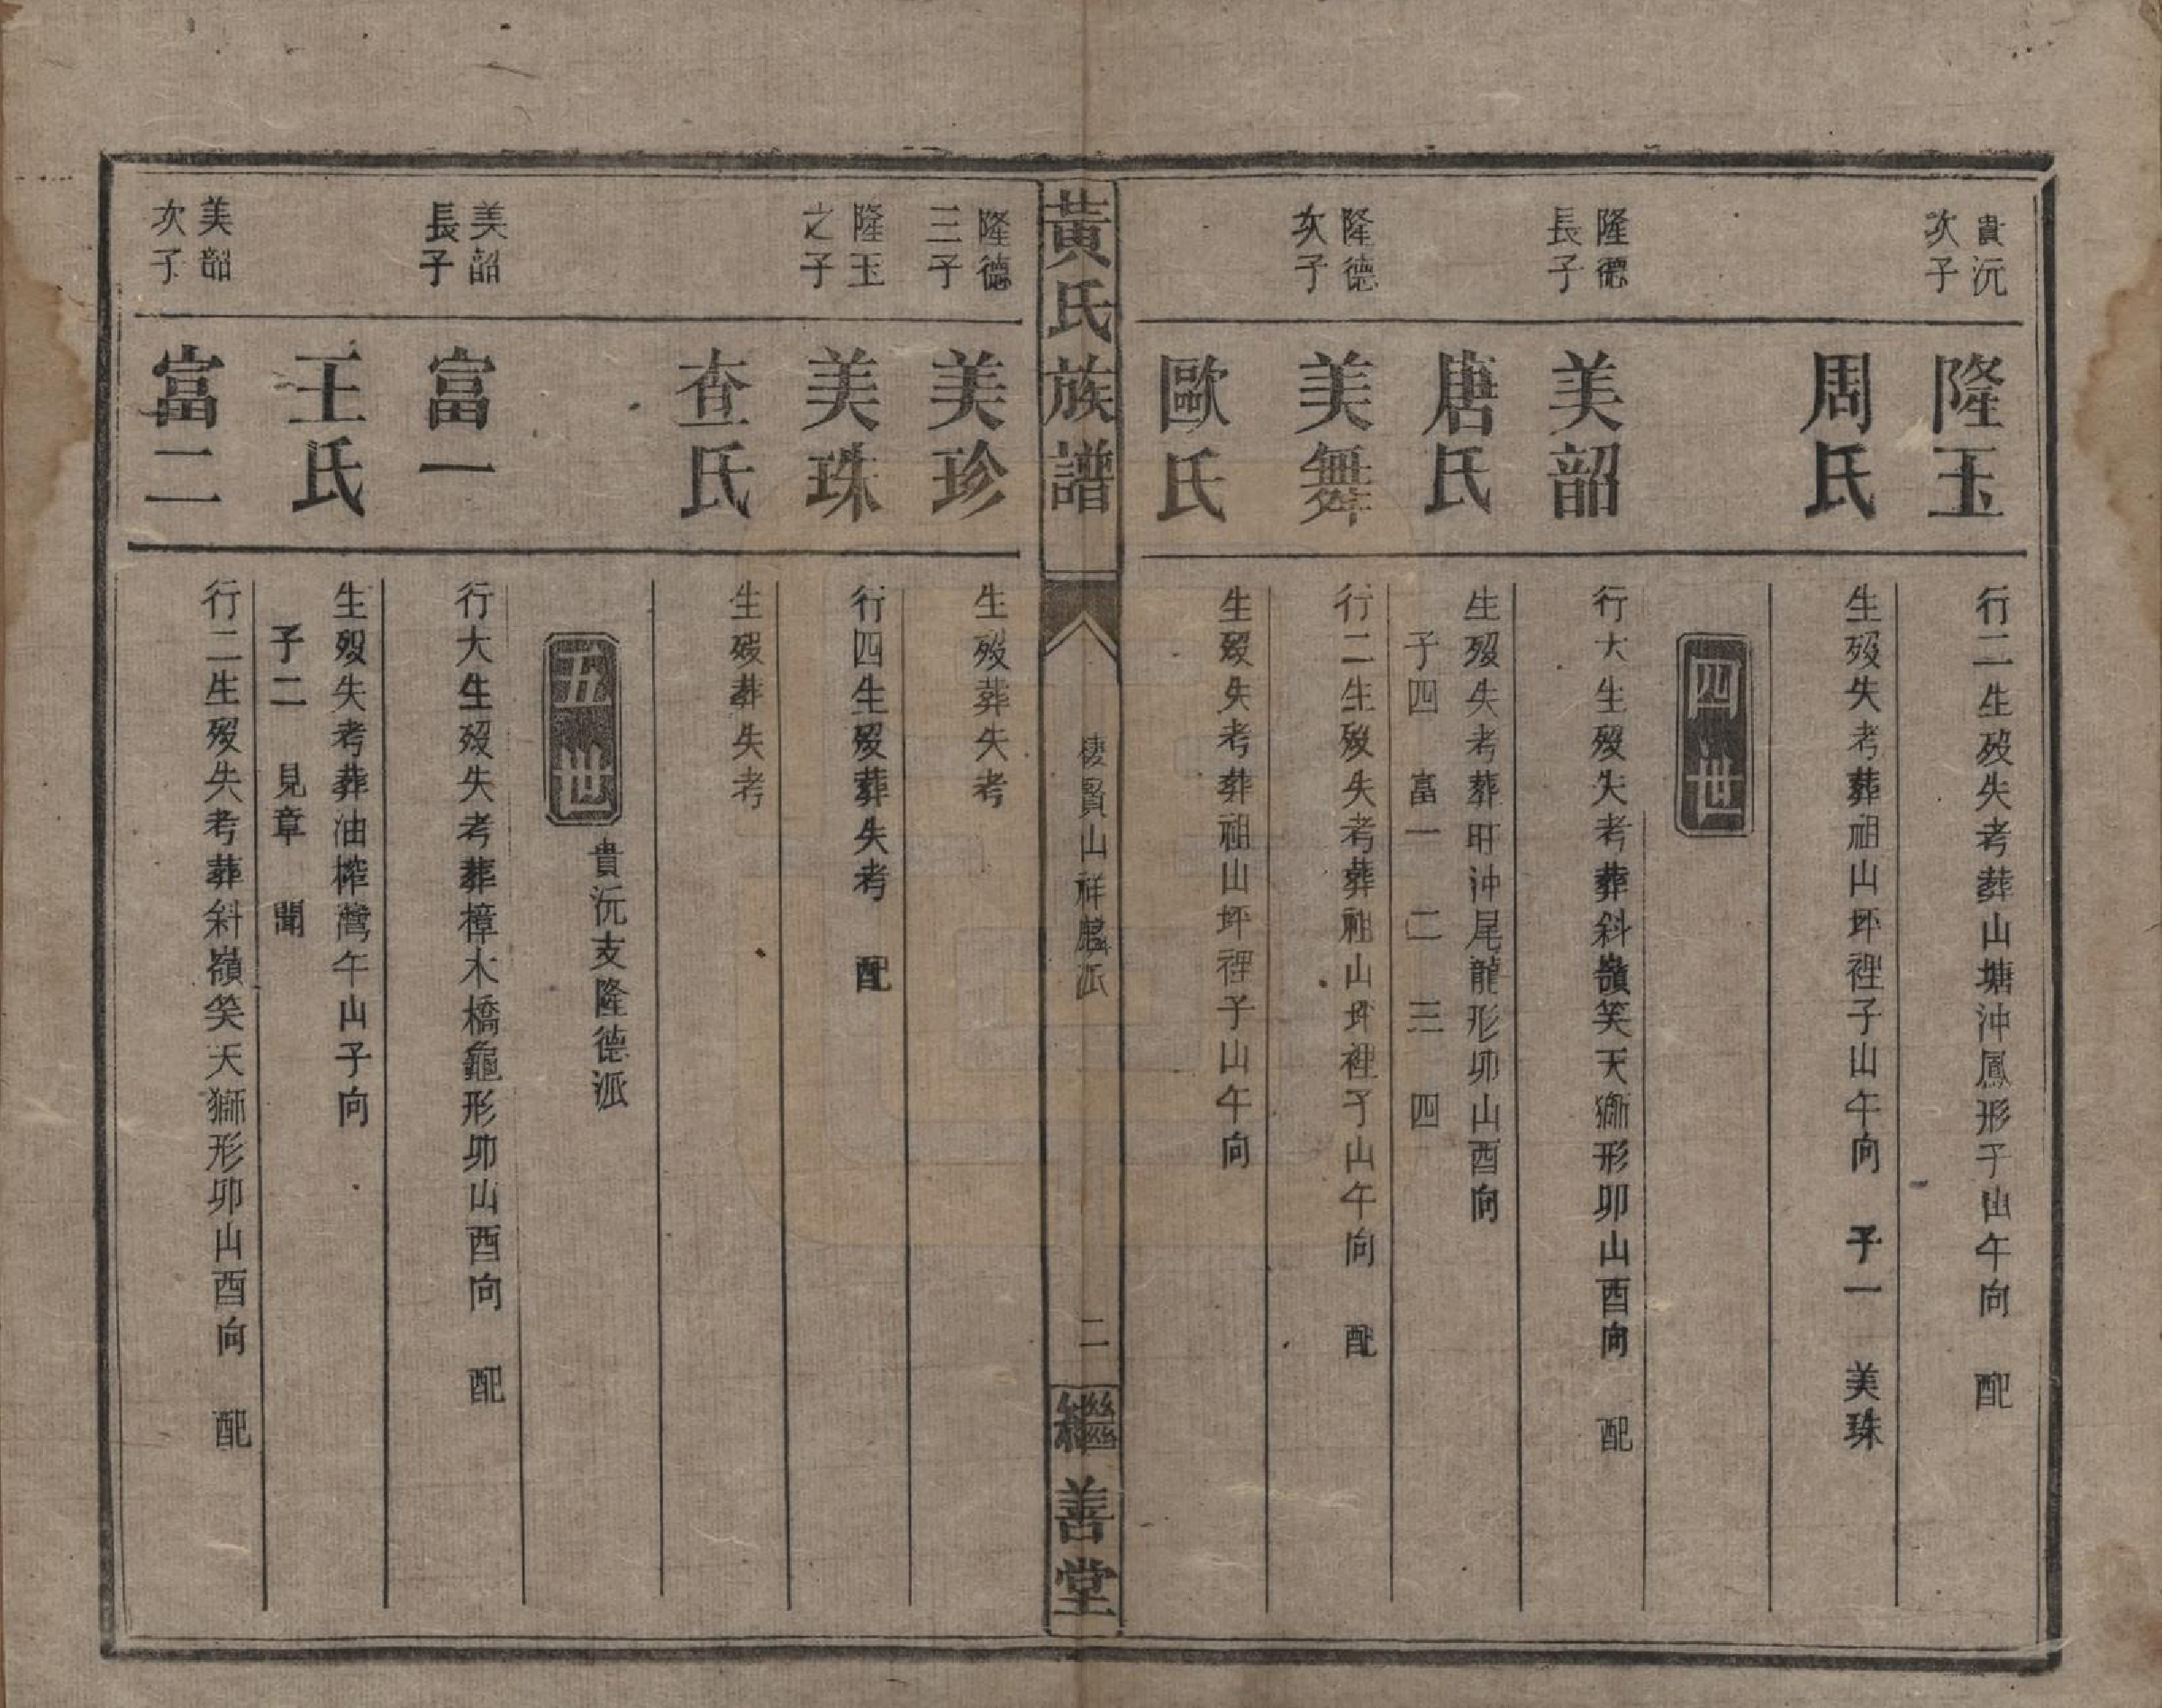 貴沅次子
隆玉
行二生歿失考葬山塘沖鳳形子山午向 配
周氏
生歿失考葬祖山坪裡子山午向 子一 美珠
四世
隆德長子
美韶
行大生歿失考葬斜嶺笑天獅形卯山酉向 配
唐氏
生歿失考葬田沖尾龍形卯山酉向
子四 富一 二 三 四
隆德次子
美舞
行二生歿失考葬祖山坪裡子山午向 配
歐氏
生歿失考葬祖山坪裡子山午向
黃氏族譜
棲賢山祥麟派
二
繼善堂
隆德三子
美珍
生歿葬失考
隆玉之子
美珠
行四生歿葬失考 配
查氏
生歿葬失考
五世
貴沅支隆德派
美韶長子
富一
行大生歿失考葬樟木橋龜形卯山酉向 配
王氏
生歿失考葬油榨灣午山子向
子二 見章 聞
美韶次子
富二
行二生歿失考葬斜嶺笑天獅形卯山酉向 配